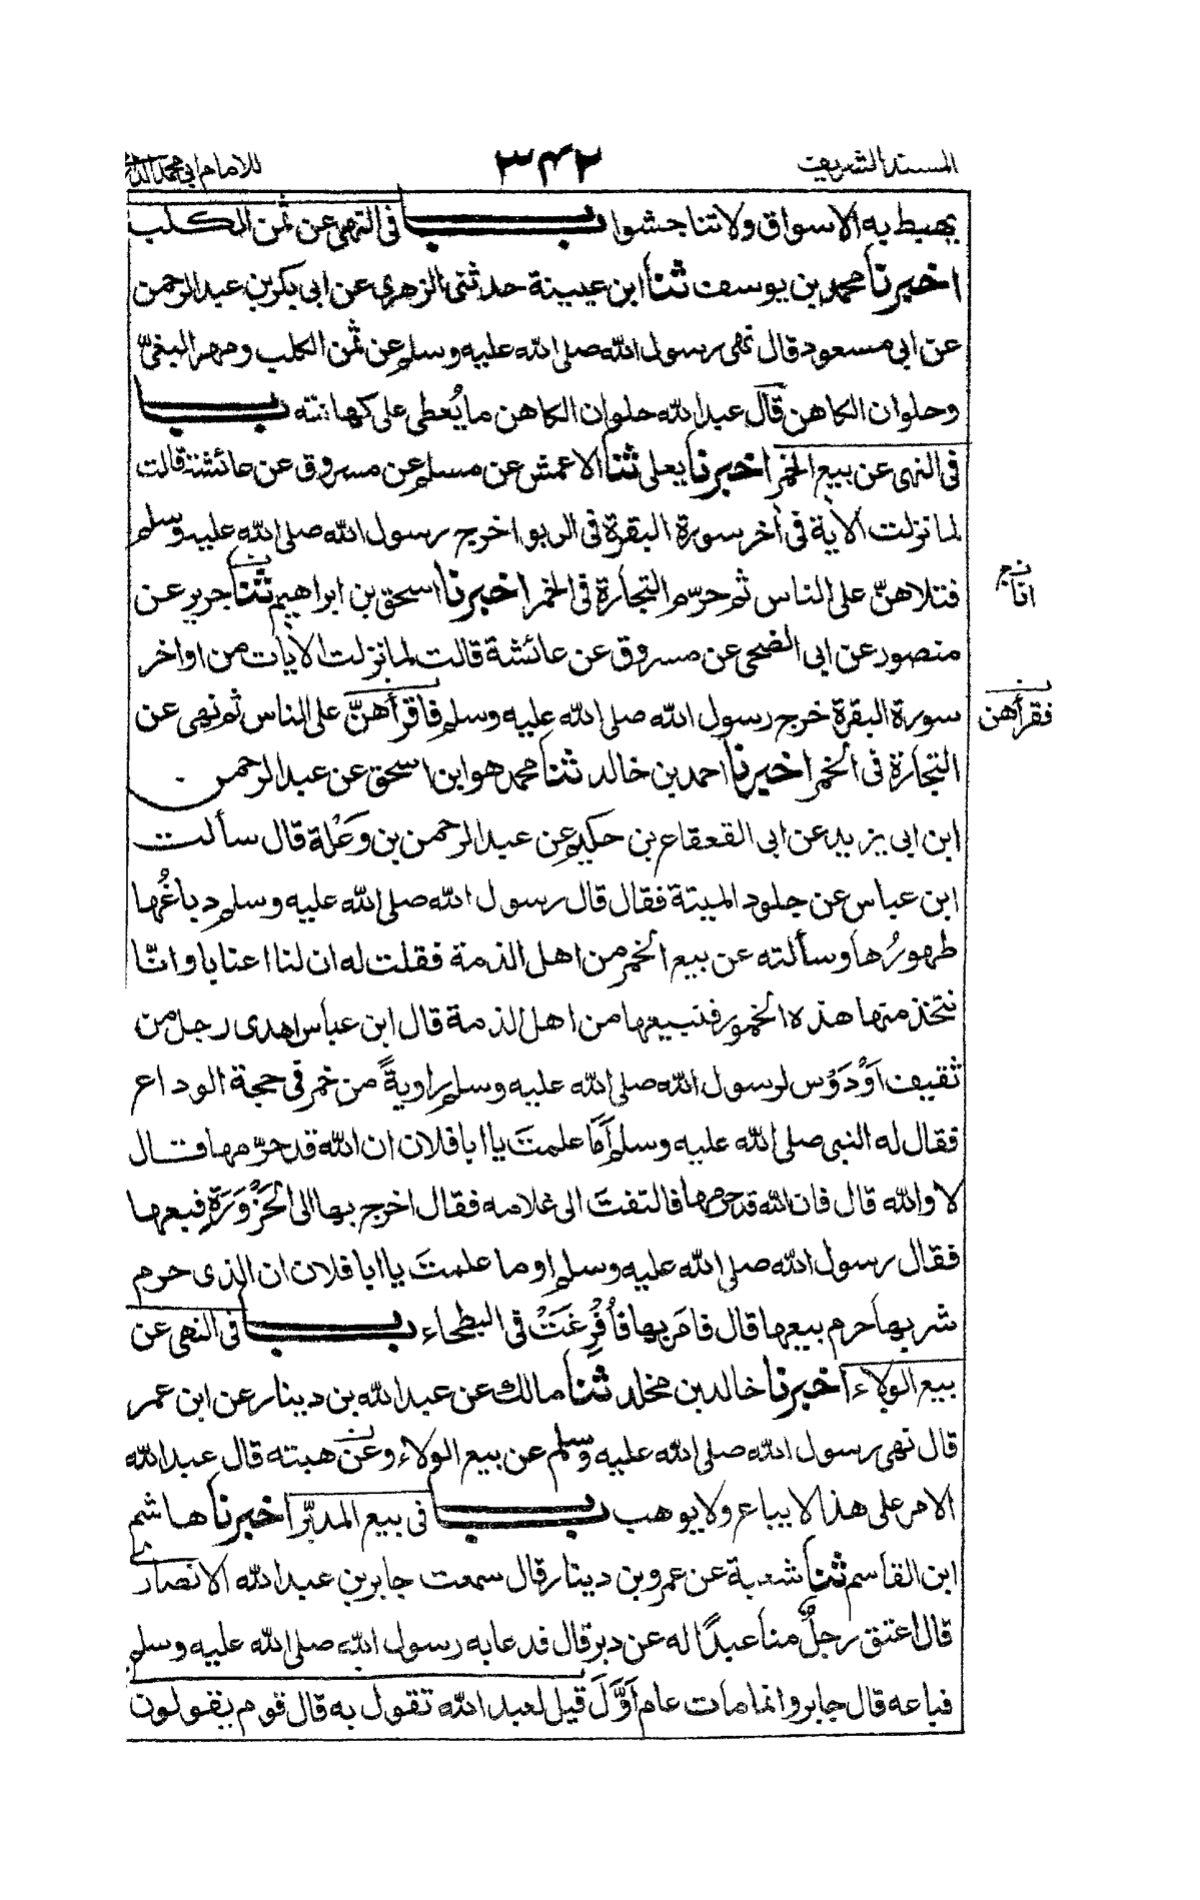 المسند الشريف ٣٤٢ للامام ابى محمد
يهبط به الاسواق ولا تناجشوا باب فى النهى عن ثمن الكلب
اخبرنا محمد بن يوسف ثنا ابن عيينة حدثنى الزهرى عن ابى بكر بن عبد الرحمن
عن ابى مسعود قال نهى رسول الله صلى الله عليه وسلم عن ثمن الكلب ومهر البغىّ
وحلوان الكاهن قال عبد الله حلوان الكاهن ما يُعطى على كهانته باب
فى النهى عن بيع الخمر اخبرنا يعلى ثنا الاعمش عن مسلم عن مسروق عن عائشة قالت
لما نزلت الآية فى آخر سورة البقرة فى الربو اخرج رسول الله صلى الله عليه وسلم
فتلاهنّ على الناس ثم حرّم التجارة فى الخمر اخبرنا اسحق بن ابراهيم ثنا جرير عن
انا
منصور عن ابى الضحى عن مسروق عن عائشة قالت لما نزلت الآيات من اواخر
سورة البقرة خرج رسول الله صلى الله عليه وسلم فاقرأهنّ على الناس ثم نهى عن
فقرأهن
التجارة فى الخمر اخبرنا احمد بن خالد ثنا محمد هو ابن اسحق عن عبد الرحمن
ابن ابى يزيد عن ابى القعقاع بن حكيم عن عبد الرحمن بن وَعْلة قال سألت
ابن عباس عن جلود الميتة فقال قال رسول الله صلى الله عليه وسلم دباغُها
طهورُها وسألته عن بيع الخمر من اهل الذمة فقلت له ان لنا اعنابا وانّا
نتخذ منها هذه الخمور فنبيعها من اهل الذمة قال ابن عباس اهدى رجل من
ثقيف اَوْ دَوْس لرسول الله صلى الله عليه وسلم راويةً من خمر فى حجة الوداع
فقال له النبى صلى الله عليه وسلم اَمَا علمتَ يا ابا فلان ان الله قد حرّمها فقال
لا والله قال فان الله قد حرمها فالتفتَ الى غلامه فقال اخرج بها الى الحَزْوَرَةِ فبعها
فقال رسول الله صلى الله عليه وسلم او ما علمتَ يا ابا فلان ان الذى حرم
شربها حرم بيعها قال فامَر بها فاُفْرِغَتْ فى البطحاء باب فى النهى عن
بيع الولاء اخبرنا خالد بن مخلد ثنا مالك عن عبد الله بن دينار عن ابن عمر
قال نهى رسول الله صلى الله عليه وسلم عن بيع الولاء وعن هبته قال عبد الله
الامر على هذا لا يباع ولا يوهب باب فى بيع المدبّر اخبرنا هاشم
ابن القاسم ثنا شعبة عن عمرو بن دينار قال سمعت جابر بن عبد الله الانصارى
قال اعتق رجلٌ منا عبدًا له عن دبر قال فدعا به رسول الله صلى الله عليه وسلم
فباعه قال جابر وانما مات عام اَوَّلَ قيل لعبد الله تقول به قال قوم يقولون